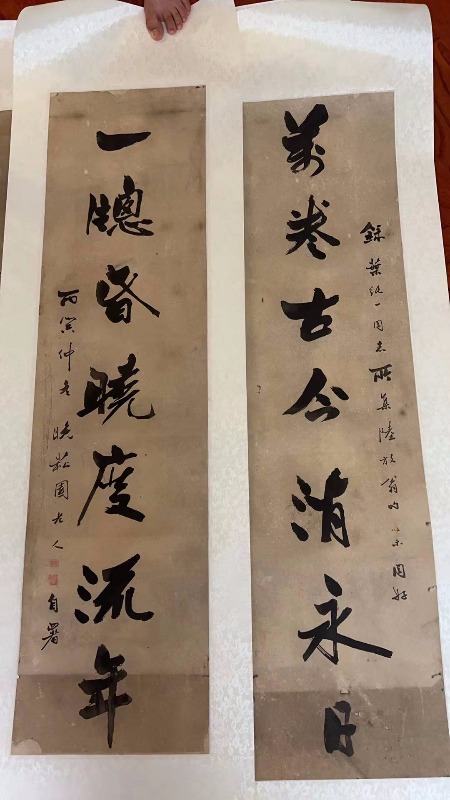 錄葉一同志所集陸放翁句以示同好
萬卷古今消永日
一牕昏曉度流年
丙寅仲冬晚菘園老人
自署